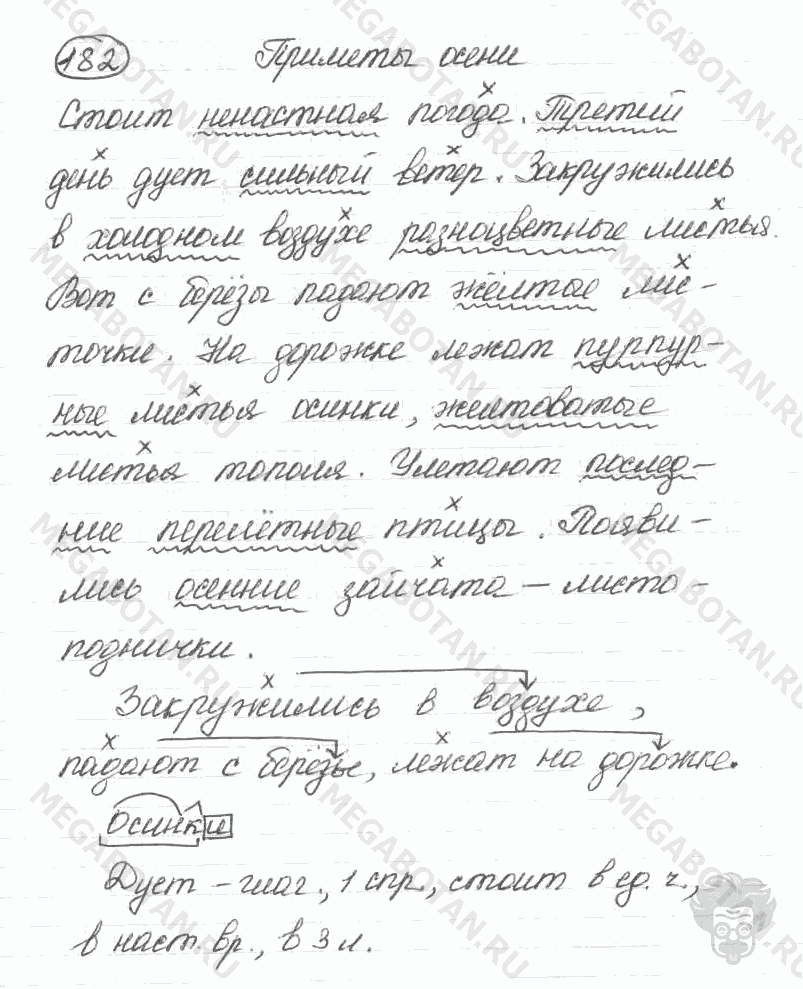 182 Приметы осени
Стоит ненастная погода. Третий
день дует сильный ветер. Закружились
в холодном воздухе разноцветные листья.
Вот с берёзы падают жёлтые лис-
точки. На дорожке лежат пурпур-
ные листья осинки, желтоватые
листья тополя. Улетают послед-
ние перелётные птицы. Появи-
лись осенние зайчата – листо-
поднички.
Закружились в воздухе,
падают с берёзы, лежат на дорожке.
Осинки
Дует – глаг., 1 спр., стоит в ед. ч.,
в наст. вр., в 3 л.
MEGABOTAN.RU